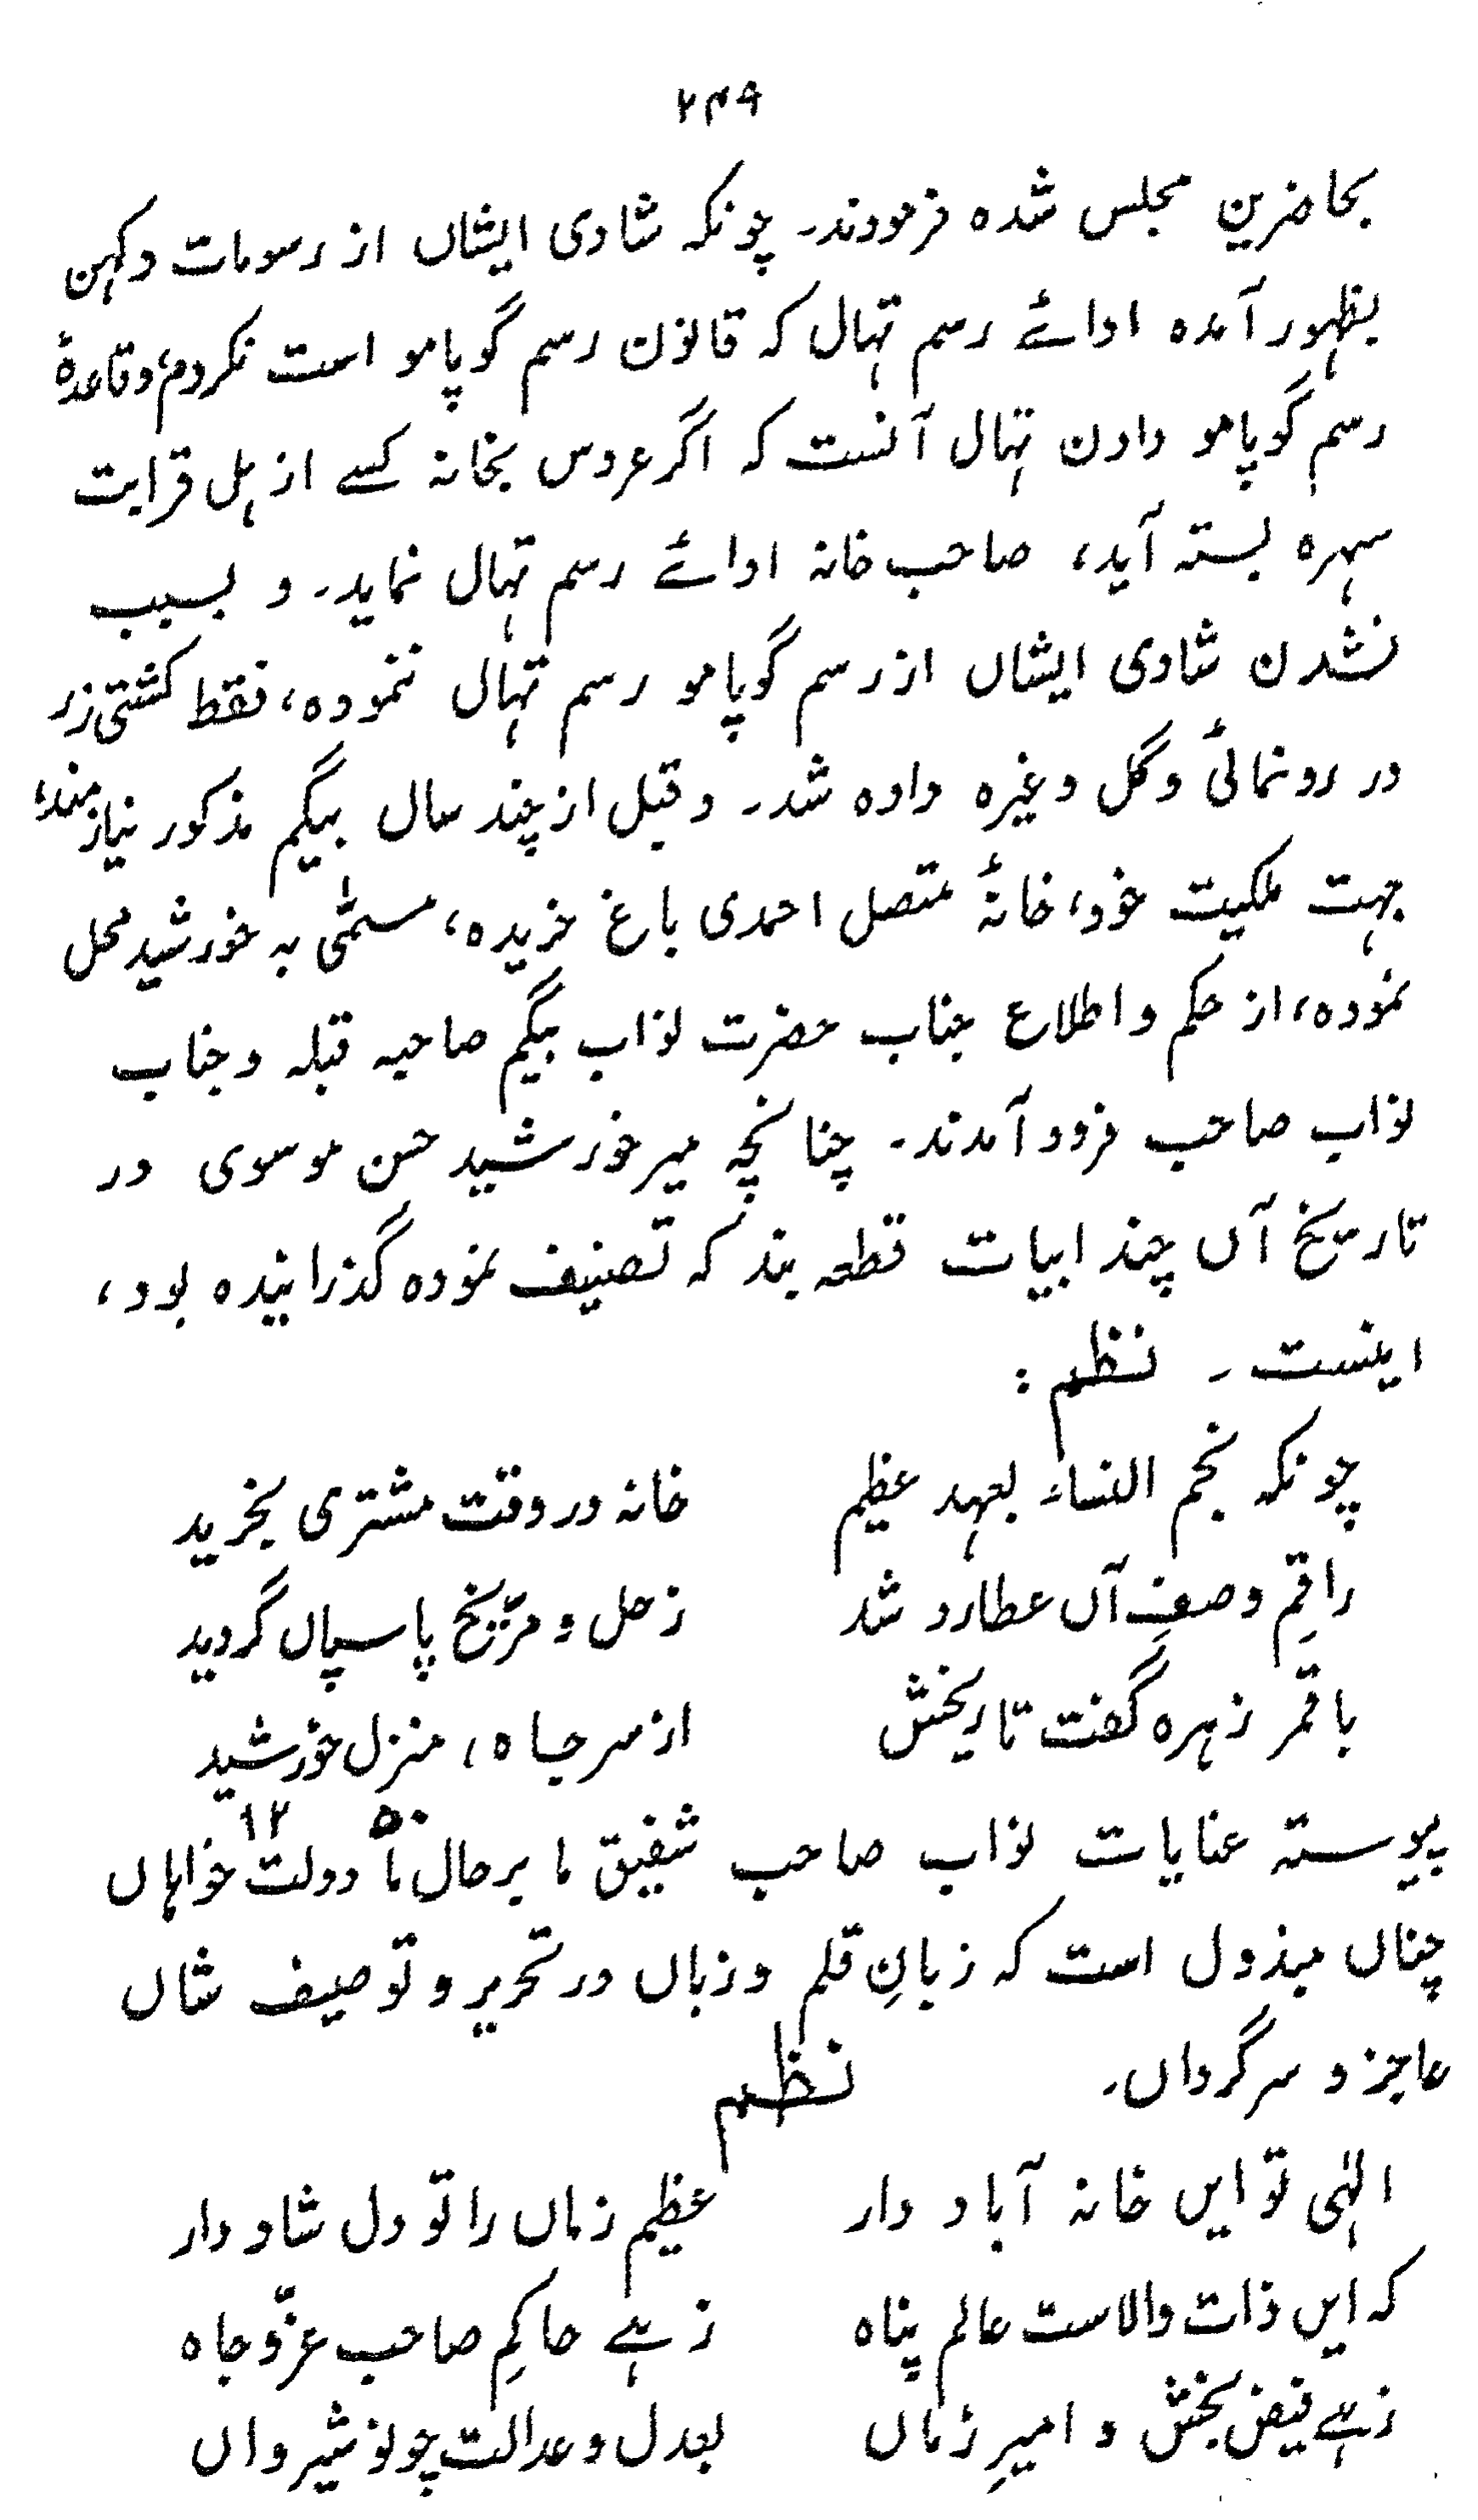 ۲۴۹
بحاضرین مجلس شده فرمودند۔ چونکہ شادی ایشاں از رسومات دکہن
بظہور آمدہ ادائے رسم تہال کہ قانون رسم گوپامو است نکردم، وقاعدۂ
رسم گوپامو دادن تہال آنست کہ اگر عروس بخانہ کسے از اہل قرابت
سہرہ بستہ آید، صاحب خانہ ادائے رسم تہال نماید۔ و بسبب
نشدن شادی ایشاں از رسم گوپامو رسم تہال ننمودہ، فقط کشتی زر
در رونمائی و گل وغیرہ دادہ شد۔ و قبل از چند سال بیگم مذکور نیازمند،
جہت ملکیت خود، خانۂ متصل احمدی باغ خریدہ، مسمّٰی بہ خورشید محل
نمودہ، از حکم و اطلاع جناب حضرت نواب بیگم صاحبہ قبلہ و جناب
نواب صاحب فرود آمدند۔ چنانچہ میر خورشید حسن موسوی در
تاریخ آں چند ابیات قطعہ بند کہ تصنیف نمودہ گذرانیدہ بود،
اینست۔ نظم:
چونکہ نجم النساء بعہد عظیم خانہ در وقت مشتری بخرید
راقِم وصفِ آں عطارد شد زحل و مرّیخ پاسباں گردید
باقمر زہرہ گفت تاریخش از سر جاہ، منزل خورشید
۱۲۵۰
پیوستہ عنایات نواب صاحب شفیق ما برحال ما دولت خواہاں
چناں مبذول است کہ زبانِ قلم و زباں در تحریر و توصیف شاں
عاجز و سرگرداں۔ نظم
الٰہی تو ایں خانہ آباد دار عظیم زماں را تو دل شاد دار
کہ ایں ذات والاست عالم پناہ زہے حاکمِ صاحب عزّوجاہ
زہے فیض بخش و امیرِ زماں بعدل و عدالت چو نوشیرواں